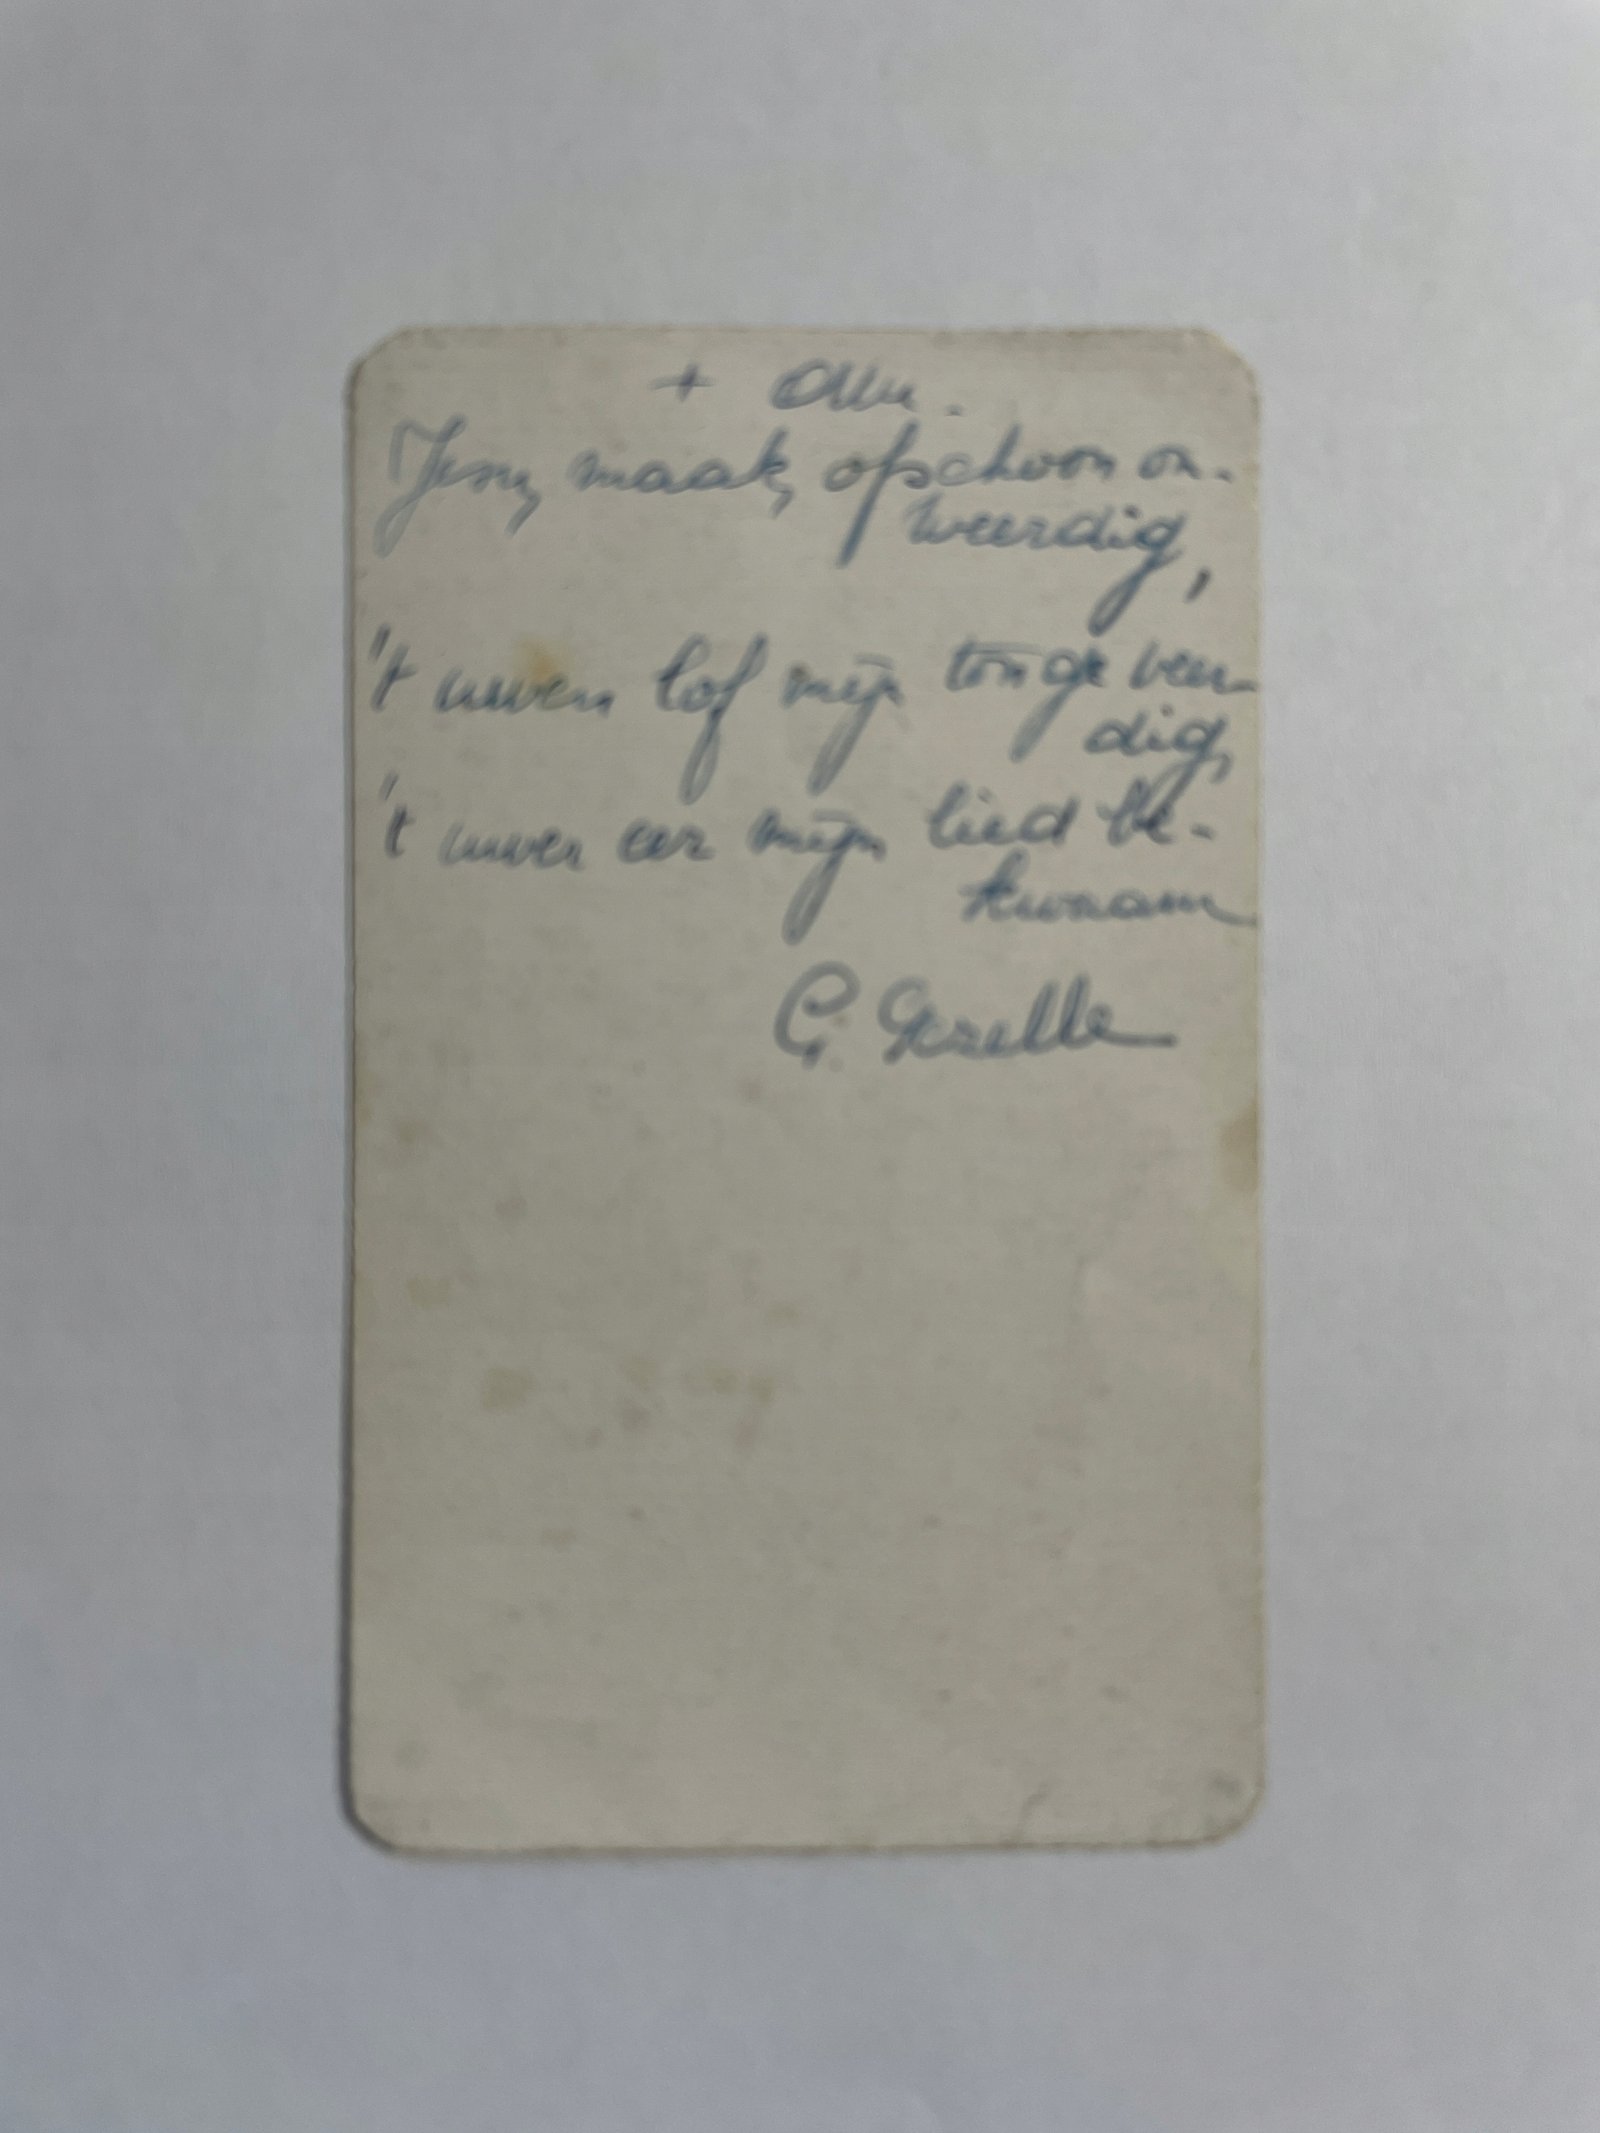 +
Jesu, maak, ofschoon on-
weerdig,
't uwen lof mijn tonge veer-
dig,
't uwer eer mijn lied be-
kwaam
G. Gezelle